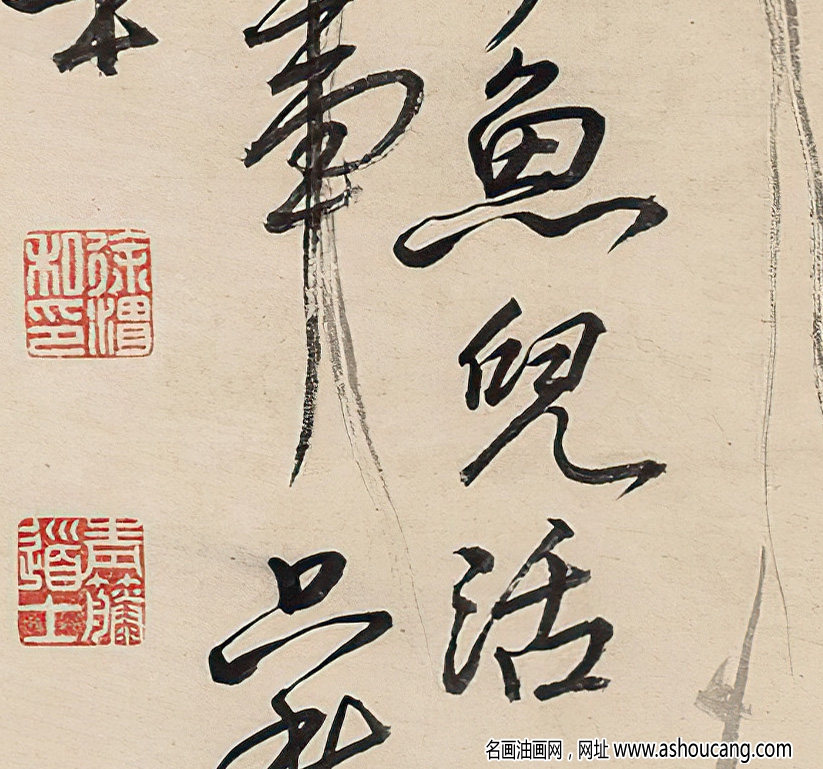 魚兒活
事
徐渭私印
青藤道士
名画油画网，网址 www.ashoucang.com